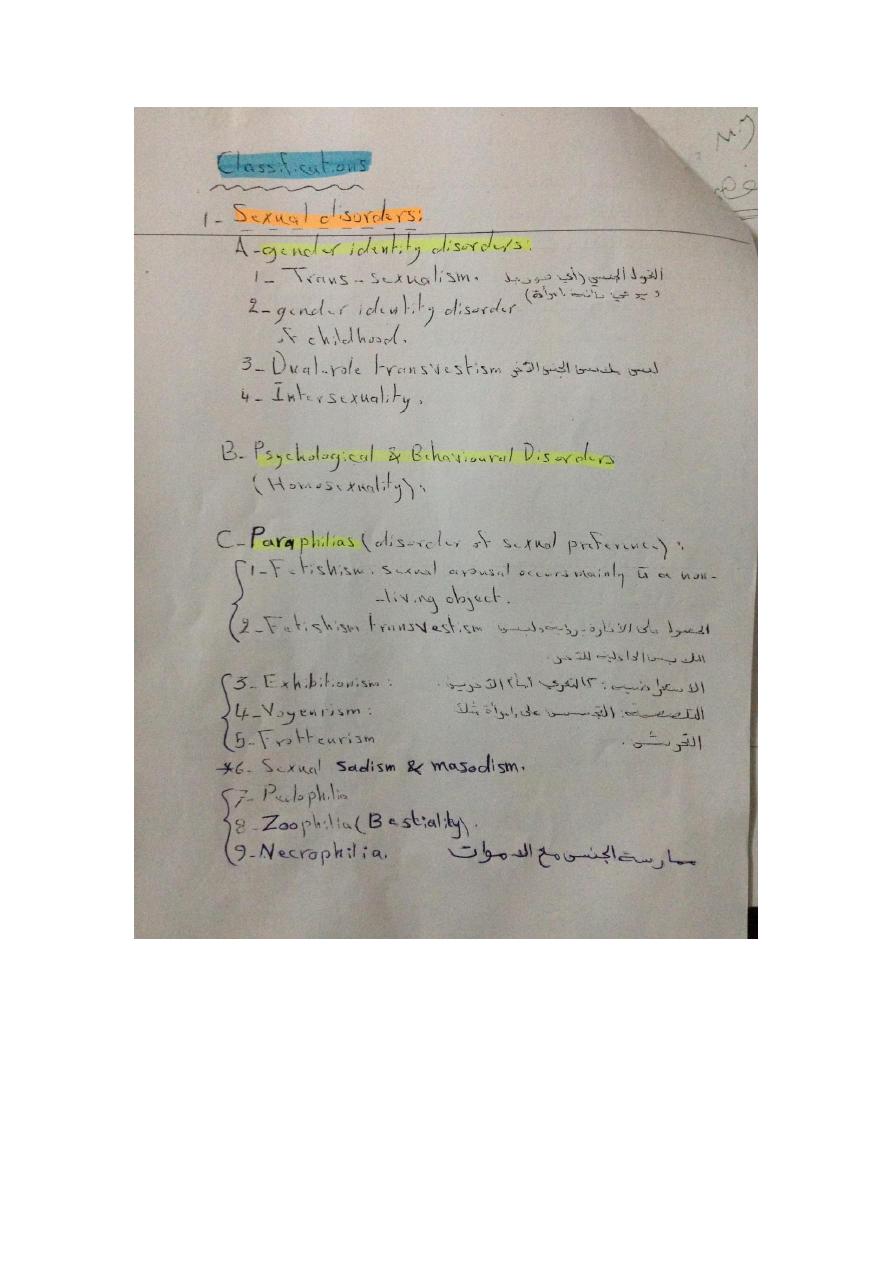 Classifications
1- Sexual disorders:
A- gender identity disorders:
1- Trans-sexualism. التحول الجنسي (أي
2- gender identity disorder
of childhood.
3- Dual-role transvestism لبس ملابس الجنس الآخر
4- Intersexuality.
B- Psychological & Behavioural Disorders
(Homosexuality):
C- Paraphilias (disorder of sexual preference):
1- Fetishism: sexual arousal occurs mainly to a non-
-living object.
2- Fetishism transvestism الحصول على الاثارة
3- Exhibitionism: التعري أمام الآخرين
4- Voyeurism: التجسس على امرأة مثلاً
5- Frotteurism
*6- Sexual sadism & masodism.
7- Pedophilia
8- Zoophilia (Bestiality).
9- Necrophilia. ممارسة الجنس مع الاموات